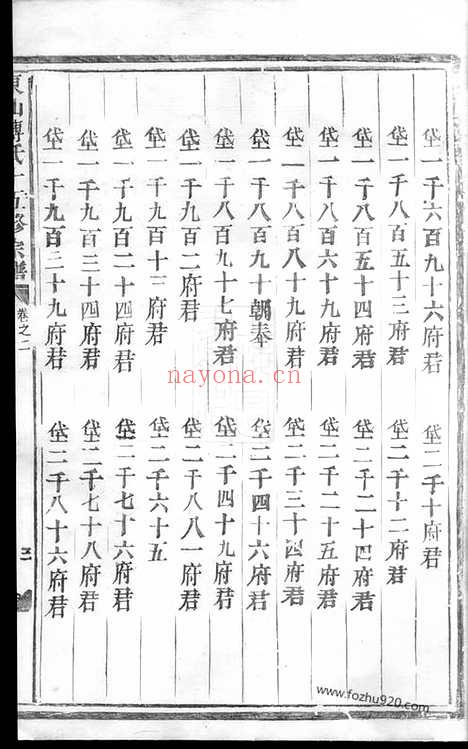 垈一千六百九十六府君
垈一千八百五十三府君
垈一千八百五十四府君
垈一千八百六十九府君
垈一千八百八十九府君
垈一千八百九十朝奉
垈一千八百九十七府君
垈一千九百二府君
垈一千九百十三府君
垈一千九百二十四府君
垈一千九百三十四府君
垈一千九百三十九府君
垈二千十府君
垈二千十二府君
垈二千二十四府君
垈二千二十五府君
垈二千三十四府君
垈二千四十六府君
垈二千四十九府君
垈二千八八一府君
垈二千六十五
垈二千七十六府君
垈二千七十八府君
垈二千八十六府君
東山傅氏十五修宗譜
卷之二
nayona.cn
www.fozhu920.com